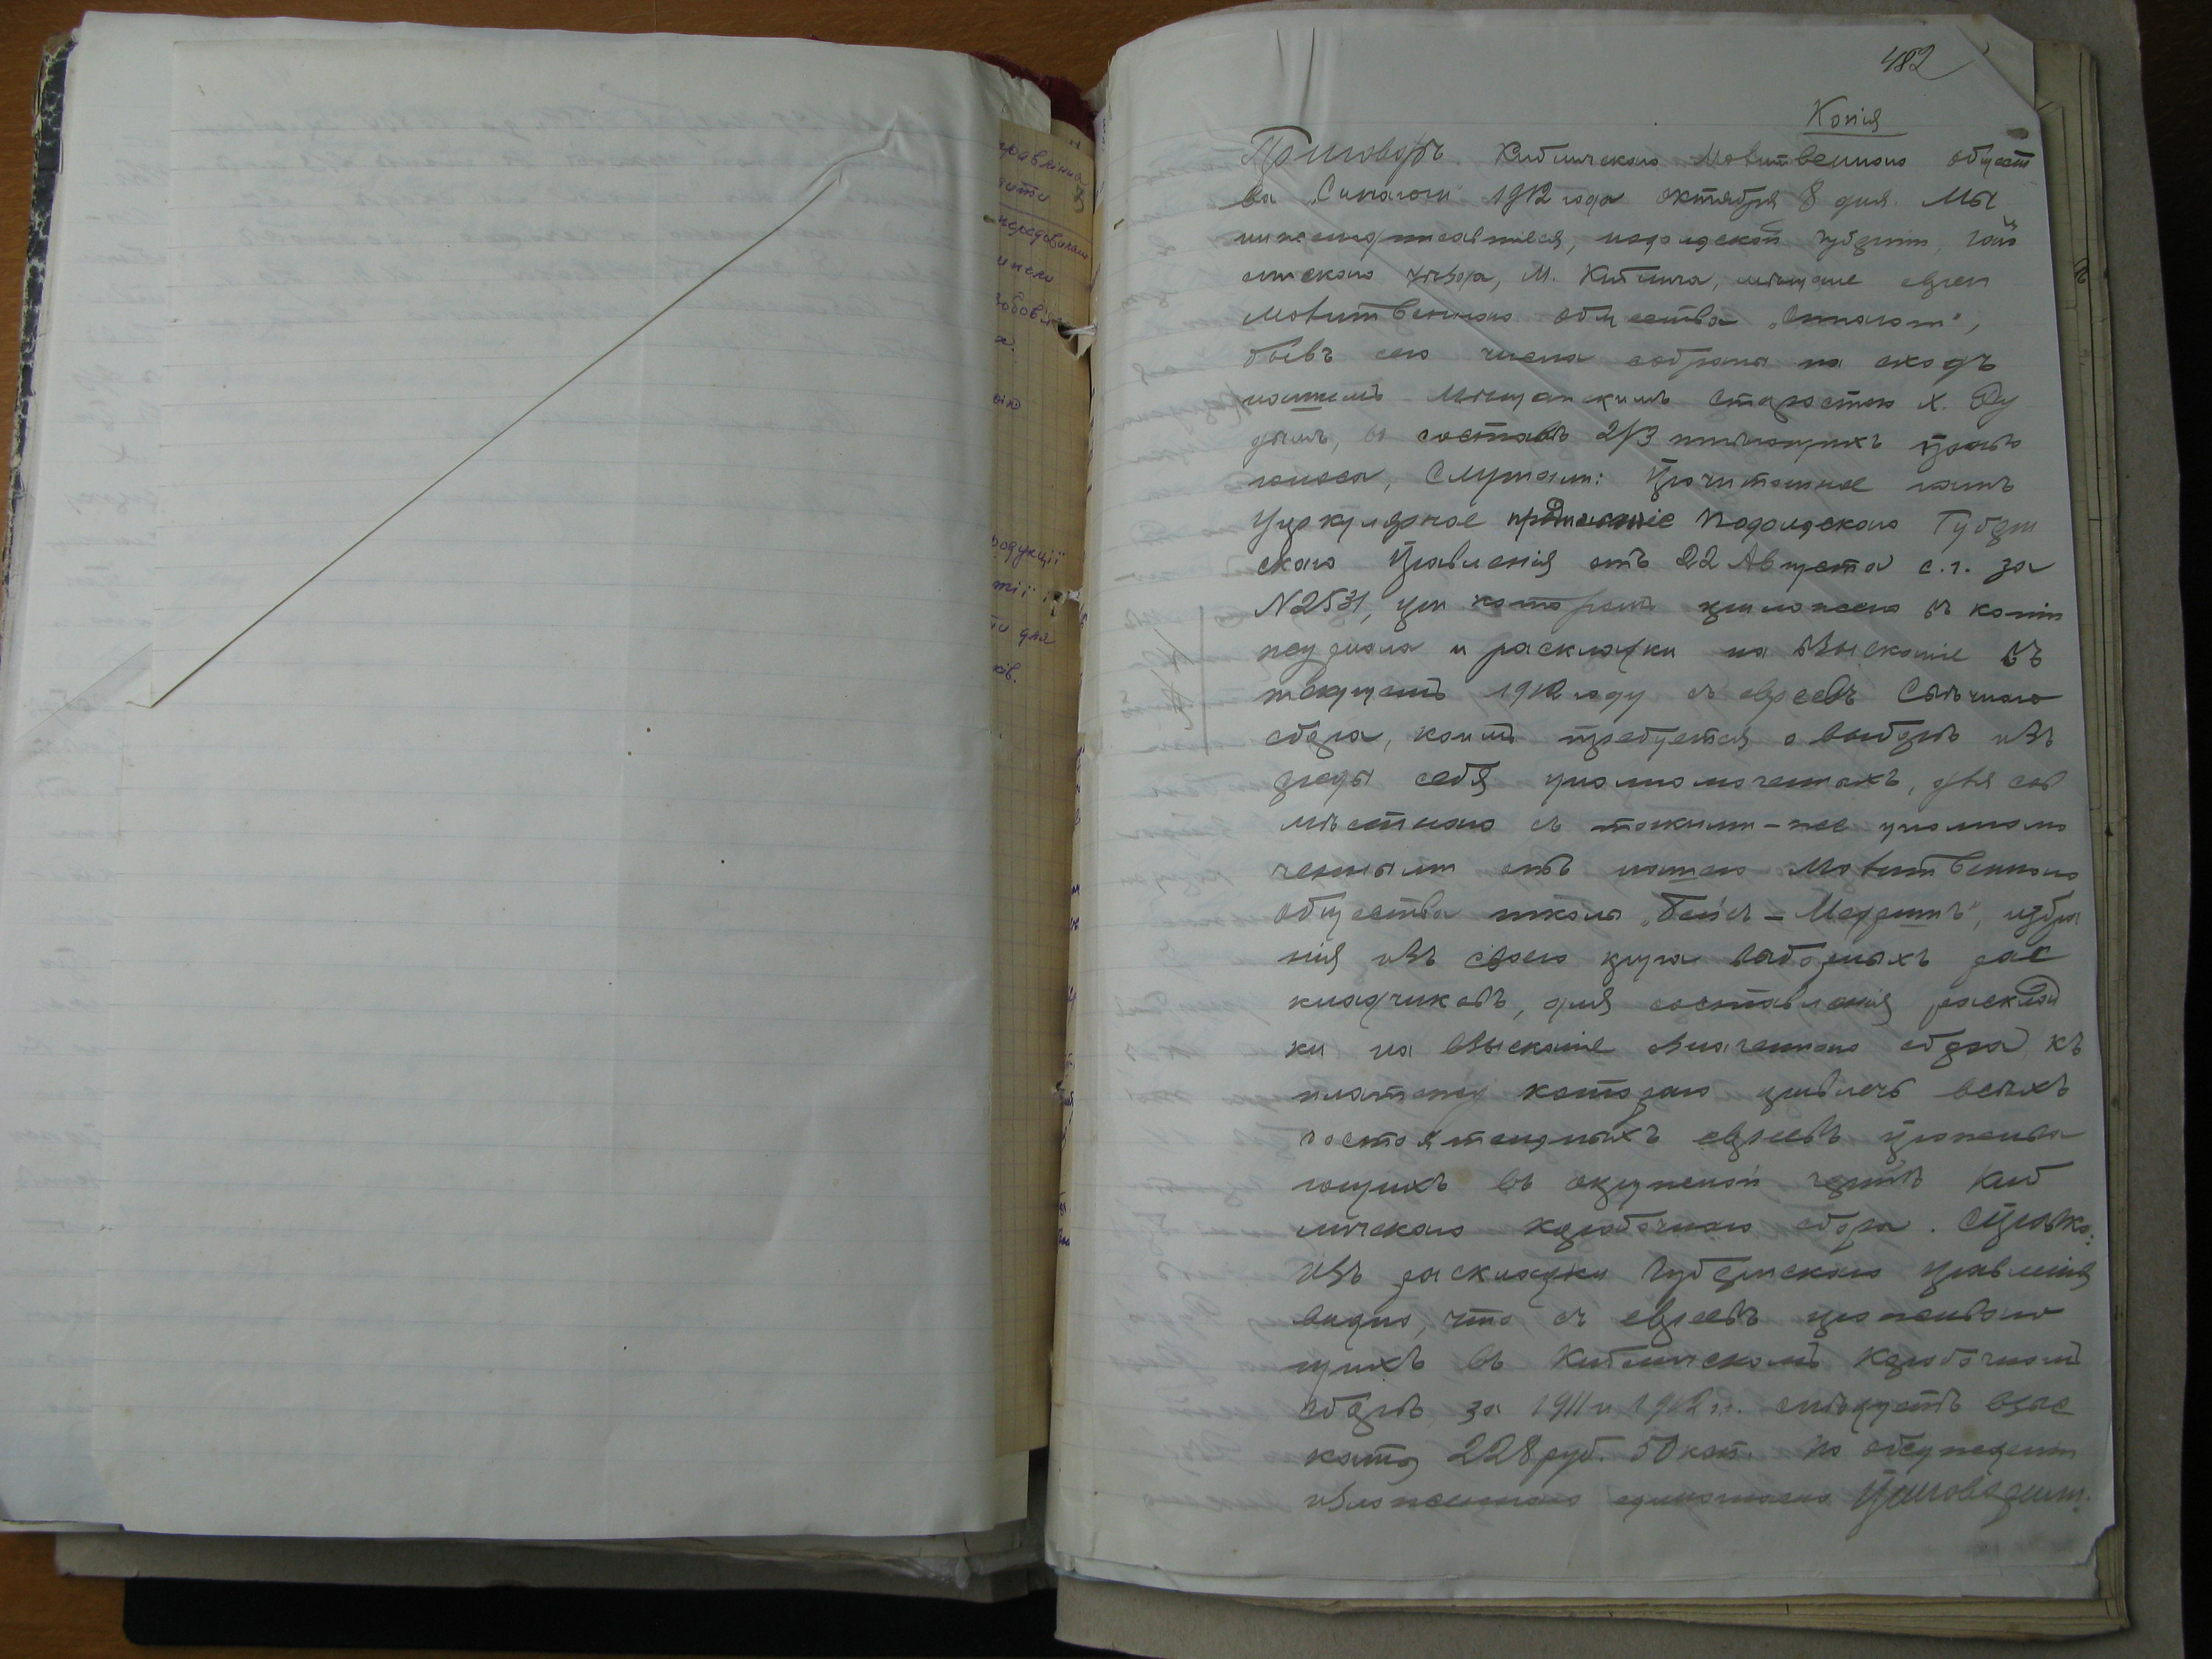 482
Копія
Приговоръ. Хибличскаго Молитвеннаго общест
ва "Синагоги" 1912 года октября 8 дня. Мы
нижеподписавшіеся, подольской губерніи, гай
синскаго уѣзда, М. Кибличa, мѣщане евреи
Молитвеннаго общества "Синагоги",
бывъ сего числа собраны на сходъ
нашимъ Мѣщанскимъ старостою Х.
въ составѣ 2/3 имѣющихъ право
голоса, Слушали: Прочитанное намъ
Циркулярное предписаніе Подольскаго Губерн
скаго Правленія отъ 22 Августа с.г. за
N2531, при которомъ приложено въ копіи
журнала и раскладки на взысканіе въ
текущемъ 1912 году съ евреевъ Свѣчного
сбора, коимъ требуется о выборѣ изъ
среды себя уполномоченныхъ, для сов
мѣстнаго съ такими-же уполномо
ченными отъ нашего Молитвеннаго
общества школы "Бейсъ-Медрешъ", избра
нія изъ своего круга выборныхъ рас
кладчиковъ, для составленія расклад
ки на взысканіе означеннаго сбора къ
платежу котораго привлечь всѣхъ
состоятельныхъ евреевъ прожива
ющихъ въ окружной чертѣ Киб
личскаго коробочнаго сбора. Справка:
изъ раскладки Губернскаго правленія
видно, что съ евреевъ проживаю
щихъ въ Кибличскомъ коробочномъ
сборѣ за 1911 и 1912 гг. слѣдуетъ взыс
кать 228 руб. 50 коп. По обсужденіи
изложеннаго единогласно Приговорили:
управлінню
передовиками
зобовʼя
родукції
тії
то для
ків.